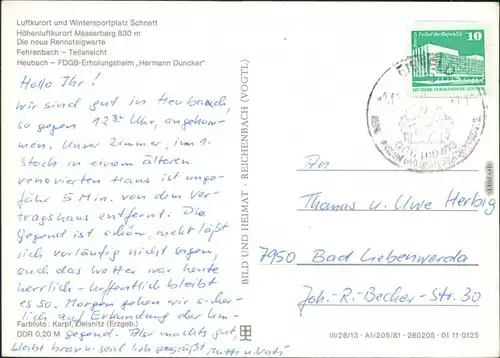 Luftkurort und Wintersportplatz Schnett
Höhenluftkurort Masserberg 830 m
Die neue Rennsteigwarte
Fehrenbach – Teilansicht
Heubach – FDGB-Erholungsheim „Hermann Duncker"
Hallo Ihr!
Wir sind gut in Heubach,
so gegen 12 30 Uhr, angekom-
men. Unser Zimmer, im 1.
Stock in einem älteren
renovierten Haus ist unge-
fähr 5 Min. von dem Ver-
tragshaus entfernt. Die
Gegend ist schön, mehr läßt
sich vorläufig nicht sagen,
auch das Wetter war heute
herrlich - hoffentlich bleibt
es so. Morgen gehen wir sicher-
lich auf Erkundung der Um-
gegend. Also machts gut,
bleibt brav u. seid lieb gegrüßt
Farbfoto: Karpf, Oelsnitz (Erzgeb.)
DDR 0,20 M
BILD UND HEIMAT · REICHENBACH (VOGTL)
Palast der Republik
10
DEUTSCHE DEMOKRATISCHE REPUBLIK
EISFELD
An
Thomas u. Uwe Herbig
7950 Bad Liebenwerda
Joh.-R.-Becher-Str. 30
III/26/13 · A1/205/81 · 280205 · 01 11 0125